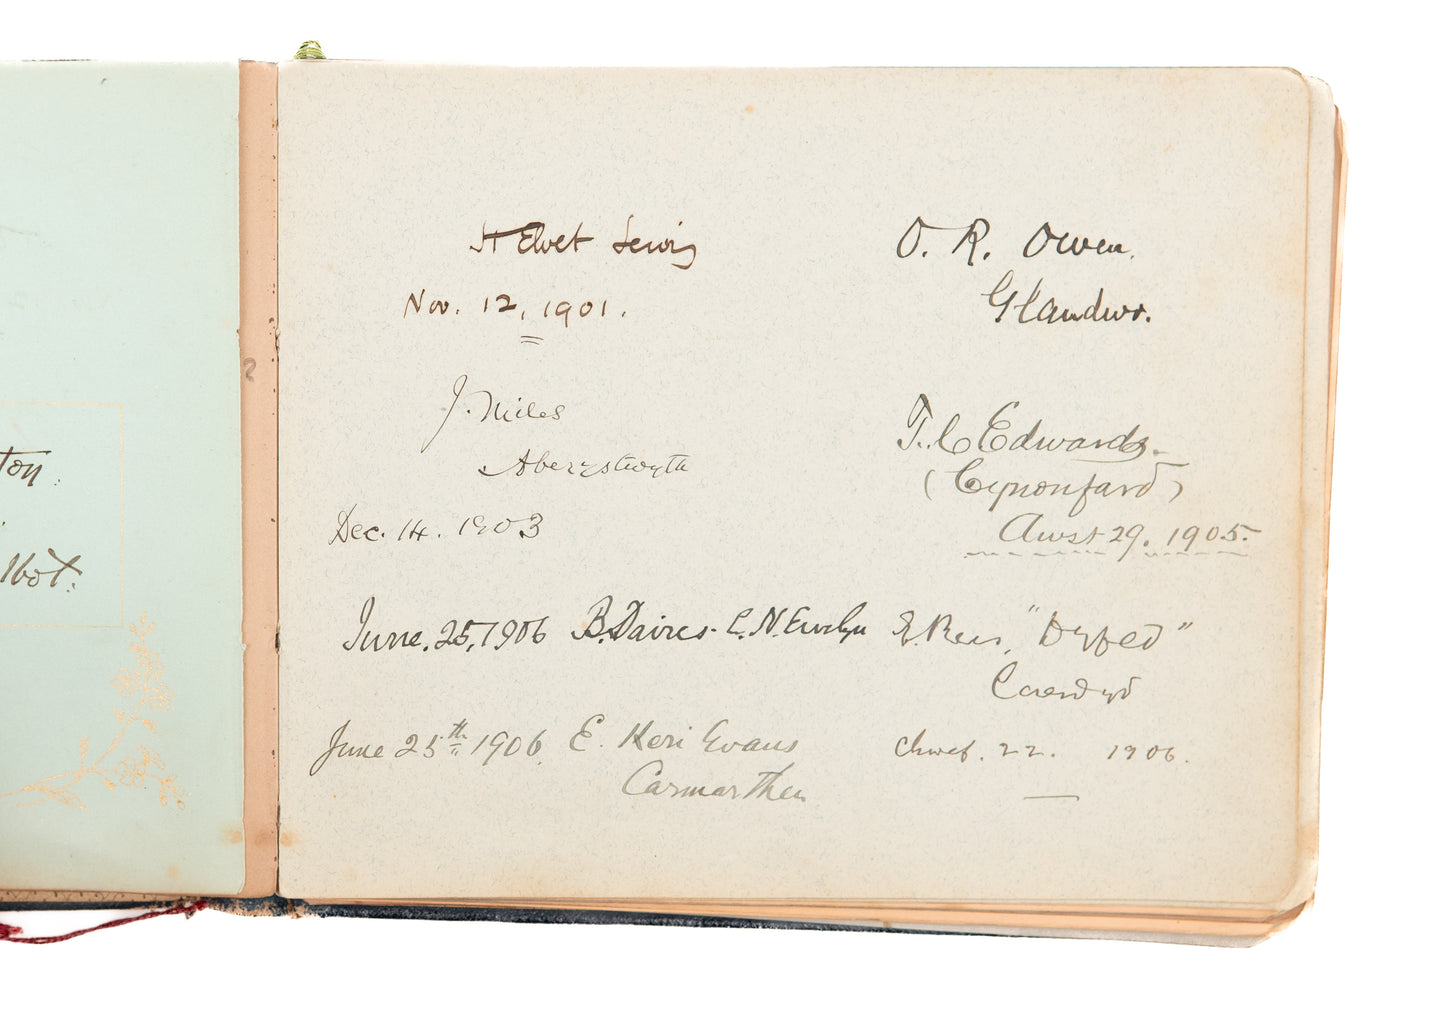 H Elvet Lewis
Nov. 12, 1901.
J. Miles
Aberystwyth
Dec. 14. 1903
June. 25, 1906 B. Davies. C. N. Evelyn
June 25th 1906. E. Keri Evans
Carmarthen
O. R. Owen.
Glandwr.
T. C. Edwards.
(Cynonfardd)
Awst 29. 1905.
E. Rees, "Dyfed"
Caerdydd
Chwef. 22. 1906.